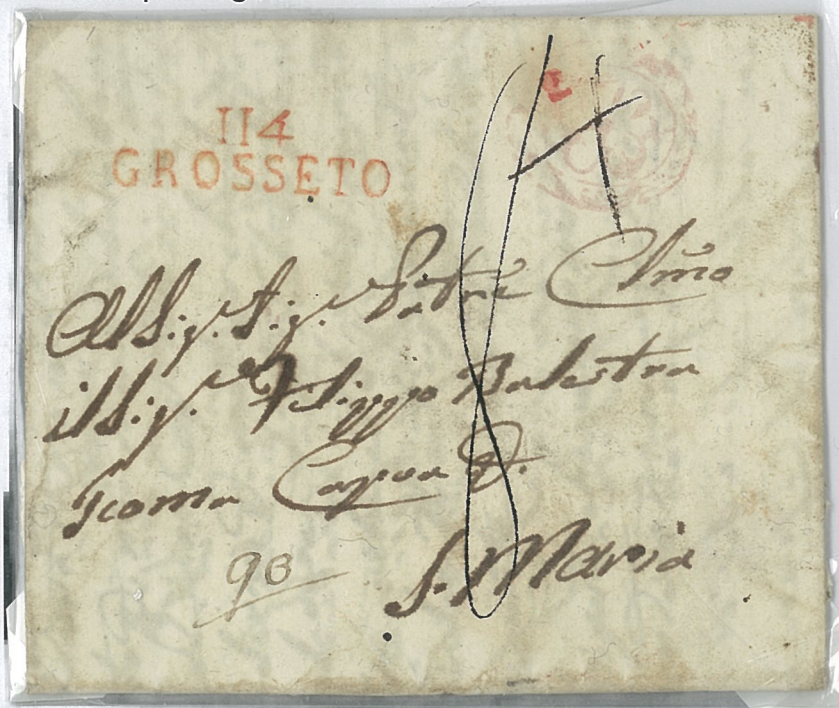 114
GROSSETO
Al Sig. Sig. Padrne Clmo
il Sig. Filippo Balestra
Capua
90
S. Maria